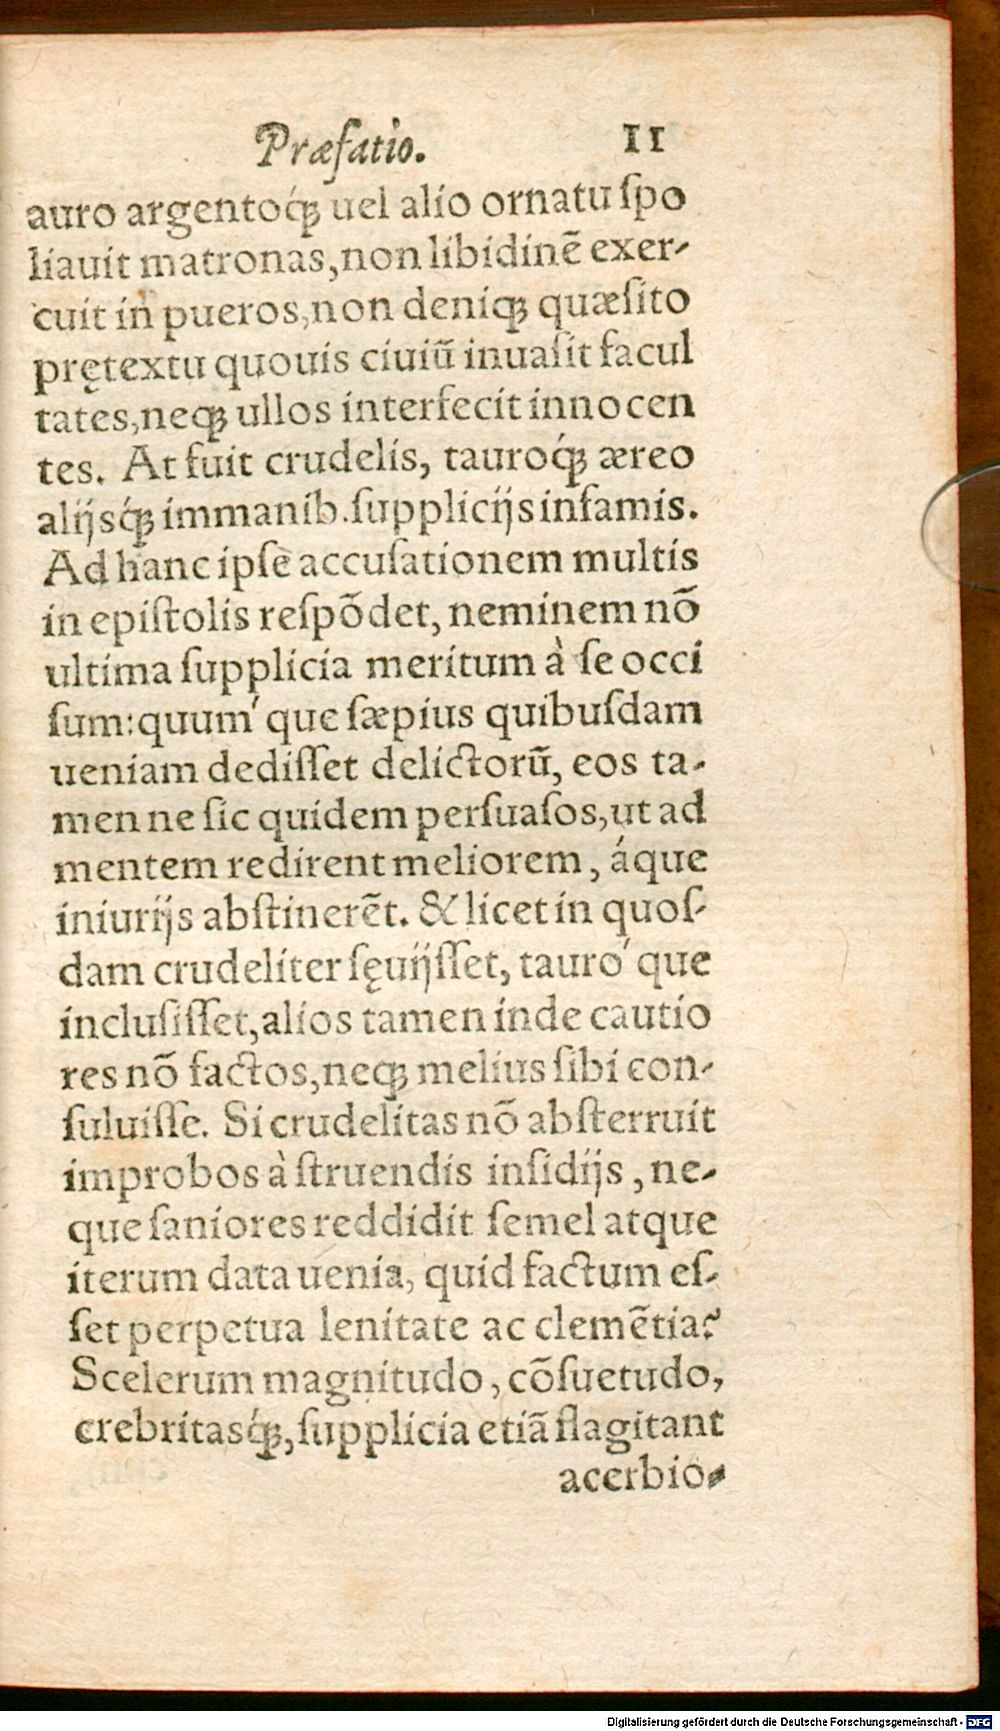 Præfatio. 11
auro argentoq́ꝫ uel alio ornatu ſpo
liauit matronas, non libidinē exer-
cuit in pueros, non deniqꝫ quæſito
prętextu quouis ciuiũ inuaſit facul
tates, neqꝫ ullos interfecit innocen
tes. At fuit crudelis, tauroq́ꝫ æreo
alijsq́ꝫ immanib. ſupplicijs infamis.
Ad hanc ipſe accuſationem multis
in epiſtolis reſpõdet, neminem nõ
ultima ſupplicia meritum à ſe occi
ſum: quum´ que ſæpius quibuſdam
ueniam dediſſet delictorũ, eos ta-
men ne ſic quidem perſuaſos, ut ad
mentem redirent meliorem, áque
iniurijs abſtinerẽt. & licet in quoſ-
dam crudeliter ſęuijſſet, tauro´ que
incluſiſſet, alios tamen inde cautio
res nõ factos, neqꝫ melius ſibi con-
ſuluiſſe. Si crudelitas nõ abſterruit
improbos à ſtruendis inſidijs, ne-
que ſaniores reddidit ſemel atque
iterum data uenia, quid factum eſ-
ſet perpetua lenitate ac clemẽtia?
Scelerum magnitudo, cõſuetudo,
crebritasq́ꝫ, ſupplicia etiã flagitant
acerbio-
Digitalisierung gefördert durch die Deutsche Forschungsgemeinschaft - DFG